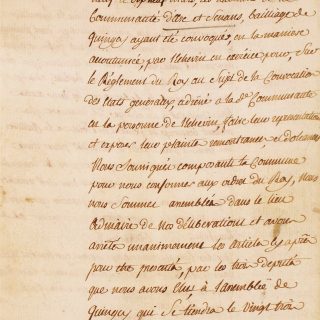 Communauté d'Arc et Senans, Bailliage de
Quingey ayant été convoqués, en la manière
accoutumée, par Echevin en exercice pour, sur
le Règlement du Roy au Sujet de la Convocation
des Etats généraux, adressé a la de. Communauté
en la personne de l'echevin, faire leur representation
et exposer leur plainte remontrance et doleances
Nous Soussignés composants la Commune
pour nous conformer aux ordres du Roy, Nous
nous sommes assemblés dans le lieu
Ordinaire de nos deliberations et avons
arrêté unanimement les articles cy après
pour être presenté, par les trois deputés
que nous avons élus à l'assemblée de
Quingey qui se tiendra le vingt trois